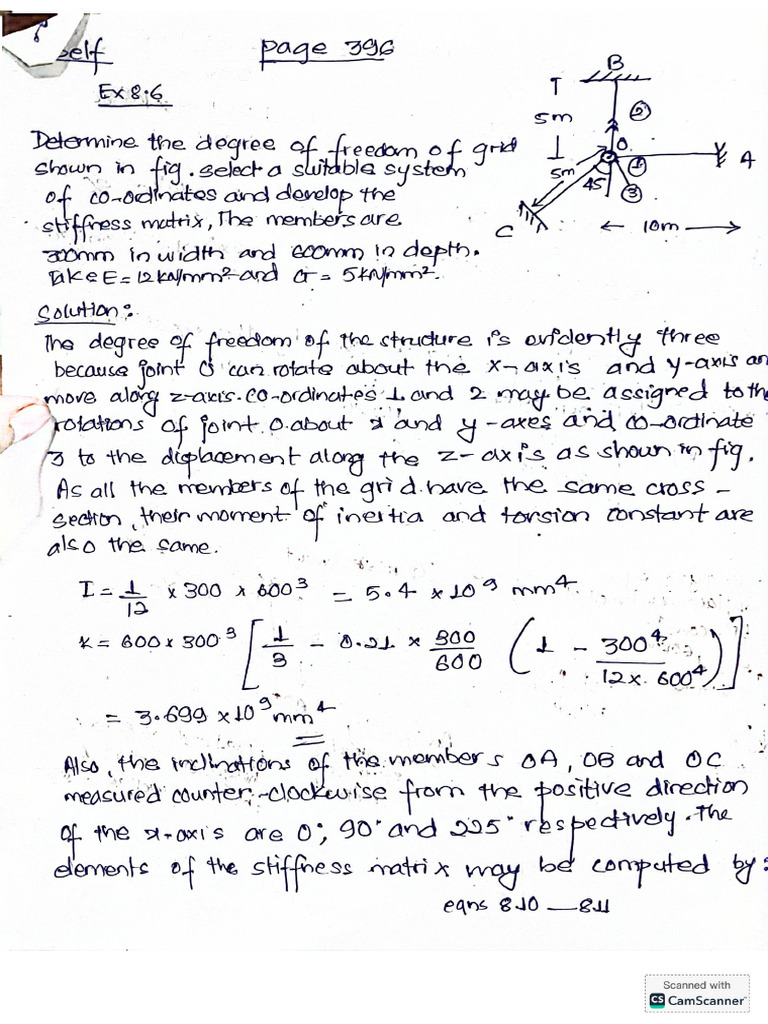 self
page 396
Ex 8.6
Determine the degree of freedom of grid
shown in fig. select a suitable system
of co-ordinates and develop the
stiffness matrix, The members are
300mm in width and 600mm in depth.
Take E = 12 kN/mm² and G = 5 kN/mm².
B
5m
②
O
5m
①
A
45°
③
C
← 10m →
Solution:
The degree of freedom of the structure is evidently three
because joint O can rotate about the x-axis and y-axis an
move along z-axis. co-ordinates 1 and 2 may be assigned to the
rotations of joint O about x and y-axes and co-ordinate
3 to the displacement along the z-axis as shown in fig.
As all the members of the grid have the same cross-
section, their moment of inertia and torsion constant are
also the same.
I = 1/12 × 300 × 600³ = 5.4 × 10⁹ mm⁴
K = 600 × 300³ [1/3 - 0.21 × 300/600 (1 - 300⁴/12 × 600⁴)]
= 3.699 × 10⁹ mm⁴
Also, the inclinations of the members OA, OB and OC
measured counter-clockwise from the positive direction
of the x-axis are 0°, 90° and 225° respectively. The
elements of the stiffness matrix may be computed by:
eqns 8.10 — 8.11
Scanned with
CS CamScanner